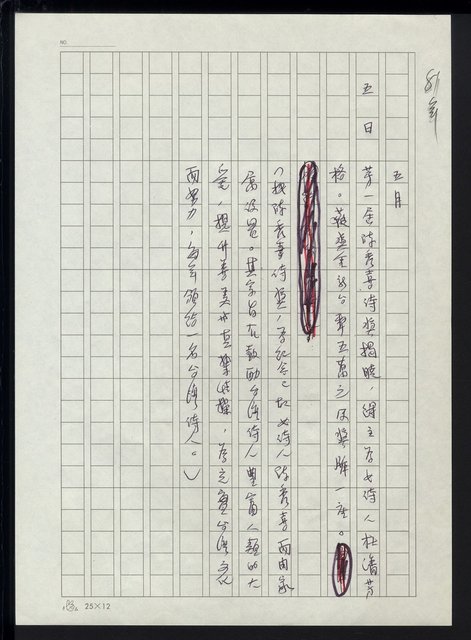 81年
五月
五日
第一屆陳秀喜詩獎揭曉，得主為女詩人杜潘芳
格。獲獎金新台幣五萬元及獎牌一座。
（按陳秀喜詩獎，為紀念已故女詩人陳秀喜而由家
屬設置。其宗旨在鼓勵台灣詩人豐富人類的大
愛，提升善美真摯情操，為充實台灣文化
而努力，每年頒給一名台灣詩人。）
NO.
25×12